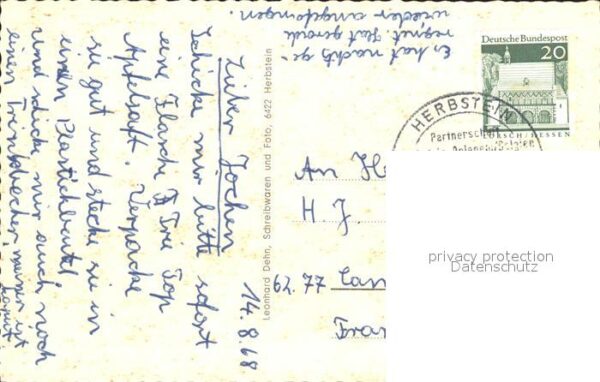 14.8.68
Lieber Jochen
Schicke mir bitte sofort
eine Flasche Tri Top
Apfelsaft. Verpacke
sie gut und stecke sie in
einen Plastikbeutel
und schicke mir auch noch
einen Trinkbecher, meiner ist
kaput
Es hat nachts ge-
regnet. Hat gerade
wieder angefangen.
Leonhard Dehn, Schreibwaren und Foto, 6422 Herbstein
Deutsche Bundespost
20
LORSCH/HESSEN
HERBSTEIN
Partnerschaft
An
H. J.
62.77 Cam
Fra
privacy protection
Datenschutz